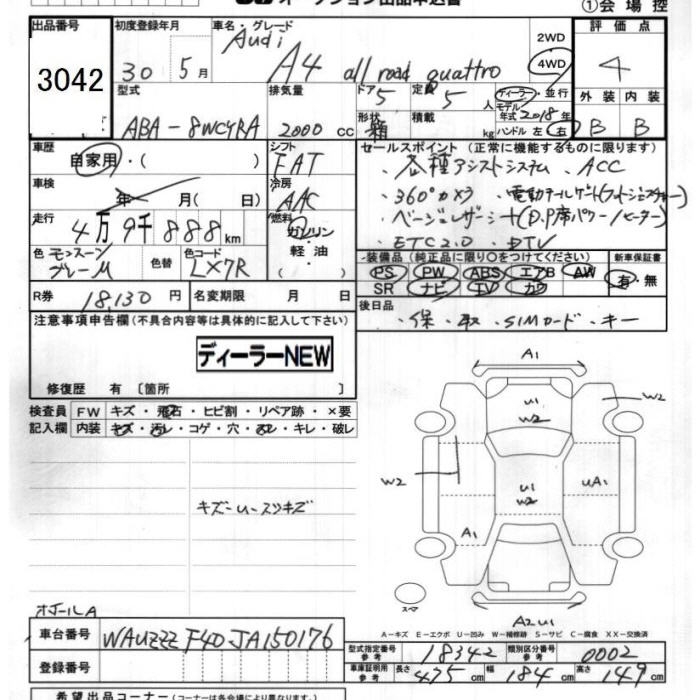 オークション出品申込書
①会場控
出品番号 初度登録年月 車名・グレード 2WD 4WD 評価点
3042 30 5月 Audi A4 all road quattro 4
型式 排気量 ドア 5 定員 5人 ディーラー・並行 外装 内装
ABA-8WCYRA 2000cc 形状 箱 積載 kg モデル年式 2018年 ハンドル 左 右 B B
車歴 自家用・( ) シフト FAT セールスポイント (正常に機能するものに限ります)
・各種アシストシステム ・ACC
車検 年 月( 日) 冷房 AAC
・360°カメラ ・電動テールゲート
走行 4万9千888km 燃料 ガソリン・軽油・( )
・ベージュレザーシート(D,P席パワー/ヒーター)
・ETC2.0 ・DTV
色 モンスーングレーM 色替 色コード LX7R
装備品 (純正品に限り○をつけてください) 新車保証書
PS PW ABS エアB AW 有・無
SR ナビ TV カワ
R券 18,130円 名変期限 月 日
後日品 ・保 ・取 ・SIMカード ・キー
注意事項申告欄(不具合内容等は具体的に記入して下さい)
ディーラーNEW
修復歴 有 〔箇所 〕
検査員記入欄 FW キズ・飛石・ヒビ割・リペア跡・×要
内装 キズ・汚レ・コゲ・穴・ヌレ・キレ・破レ
キズーU-スリキズ
A1
U1
W2
W2
W2
U1
W2
UA1
A1
スマ
A2U1
A-キズ E-エクボ U-凹み W-補修跡 S-サビ C-腐食 XX-交換済
オイールA
車台番号 WAUZZZF40JA150176
型式指定番号 参考 18342 類別区分番号 参考 0002
登録番号
車庫証明用 参考 長さ 475cm 幅 184cm 高さ 149cm
希望出品コーナー(コーナーは各会場により異なります)